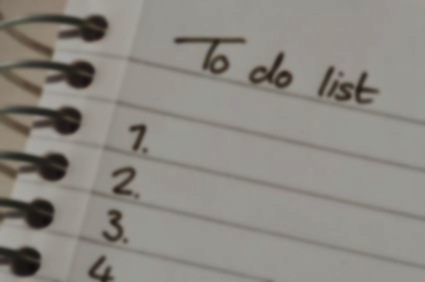 To do list
1.
2.
3.
4